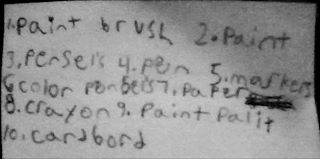 1. paint brush 2. paint
3. persels 4. pen 5. markers
6 color penbels 7. paper
8. crayon 9. paint palit
10. cardbord